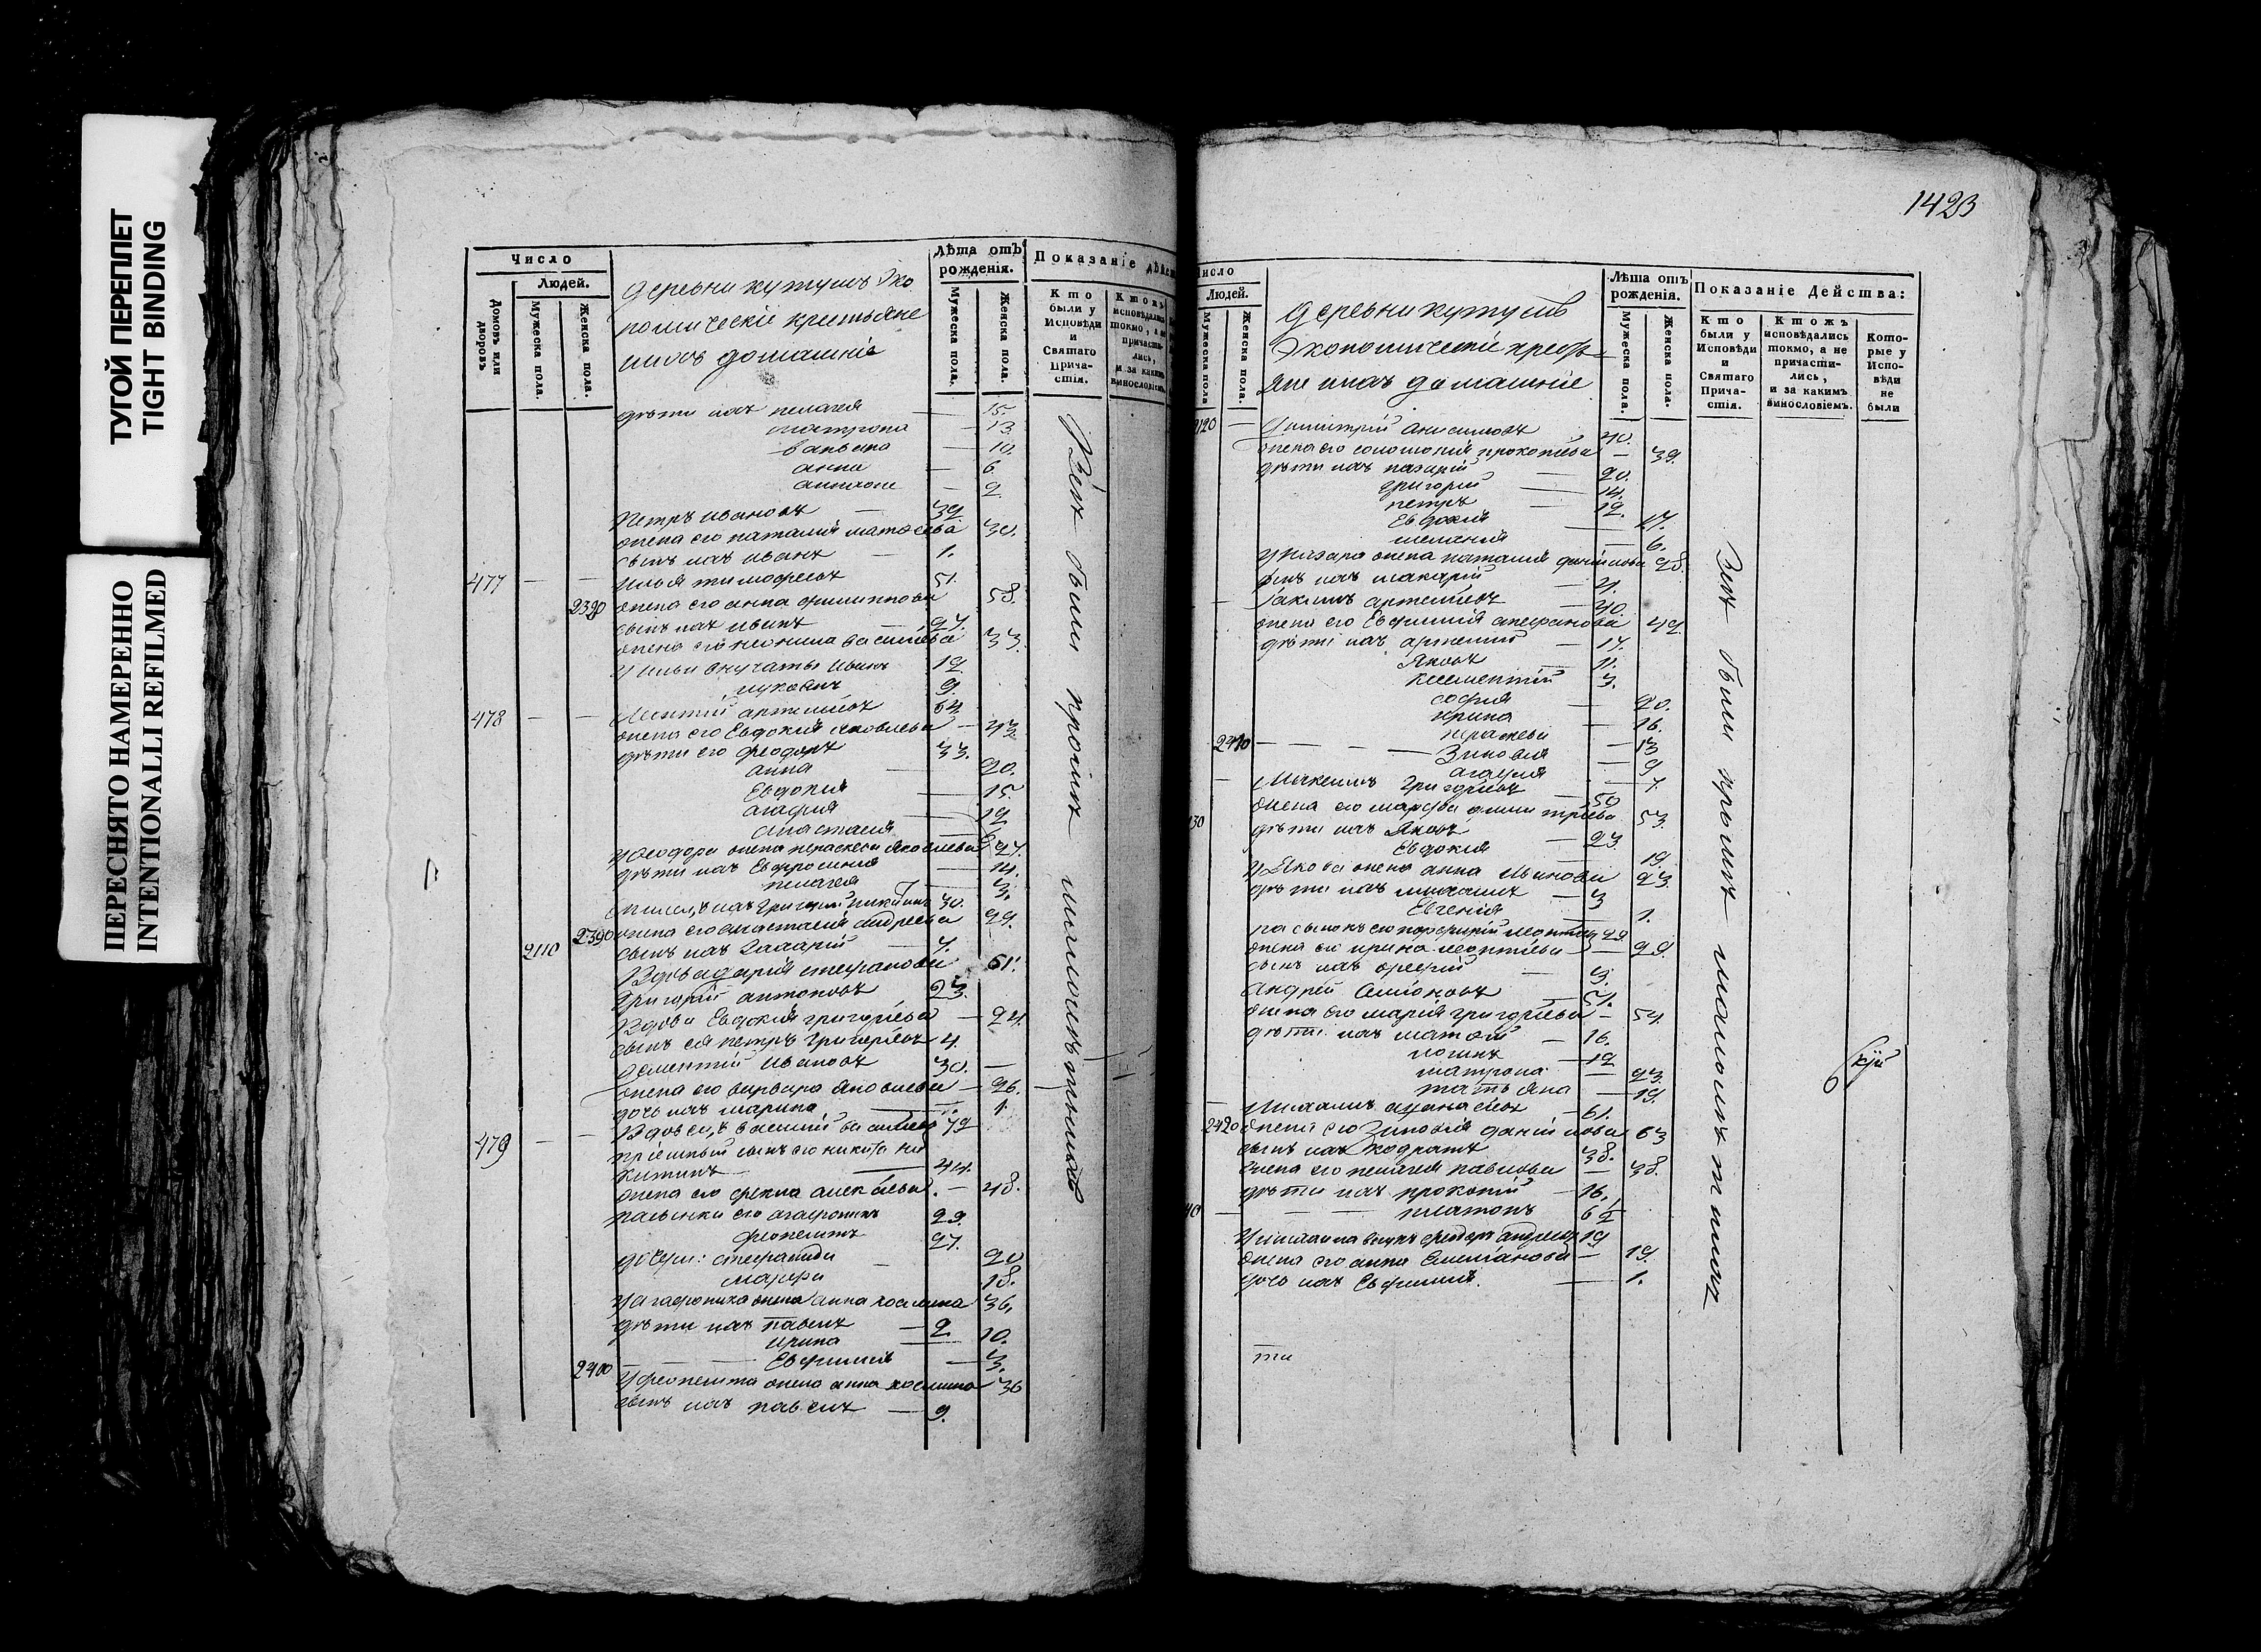 ТУГОЙ ПЕРЕПЛЕТ
TIGHT BINDING
ПЕРЕСНЯТО НАМЕРЕННО
INTENTIONALLI REFILMED
Число
Людей.
Домовъ или дворовъ
Мужеска пола.
Женска пола.
деревни кутушъ Эко
номическіе крестьяне
ихъ домашніе
Лѣта отъ рожденія.
Мужеска пола.
Женска пола.
Показаніе дѣйст
Кто были у Исповѣди и Святаго Прича-стія.
Ктожъ исповѣдались токмо, а не причасти-лись, и за какимъ винословіем.
дѣти ихъ пелагея — 15.
матрона — 13
варвара — 10.
анна — 6
2
Петръ ивановъ — 32
жена его наталия 30.
сынъ ихъ иванъ — 1.
477 — — илья тимофеевъ 51.
2380 жена его анна филиппова 58.
сынъ ихъ иванъ — 27.
жена его неонила васильева 33.
у ильи внучаты иванъ 12
9.
478 — — Леонтий артемиевъ 64
жена его Евдокия яковлева — 43
дѣти его феодоръ 33.
анна — 20.
Евдокия — 15
агафия — 12
анастасия
у феодора жена параскева яковлева 27.
дѣти ихъ Евфросиния — 14.
пелагея — 3.
григорий никитинъ 30.
2390 жена его анастасия андреева 29.
2110 сынъ ихъ захарий — 7.
Вдова дария стефанова 61.
григорий антоновъ 23.
Вдова Евдокия григорьева — 24.
сынъ ея петръ григорьевъ 4.
иванова 30. —
жена его варвара яковлева — 26.
дочь ихъ марина — 1
479 — — Вдовецъ василий васильевъ 72
приемный сынъ его никита ни
китинъ — 44.
жена его фекла алексиева. — 48.
пасынки его агафоникъ 29.
феопемптъ 27.
дочери: стефанида — 20
марфа 18.
у агафоника жена анна козмина 36.
дѣти ихъ павелъ — 2.
ирина — 10.
2400 — — Евфимия — 3.
у феопемпта жена анна козмина 36
сынъ ихъ павелъ — 9.
Всѣ были прошлѣ
1423
Число
Людей.
Мужеска пола
Женска пола.
деревни кутушъ
Экономические кресть
яне ихъ домашние
Лѣта отъ рожденія.
Мужеска пола.
Женска пола.
Показаніе Дейсшва:
Кто были у Исповѣди и Святаго Прича-стія.
Ктожъ исповѣдались токмо, а не причасти-лись, и за какимъ винословіем.
Кото-рые у Испо-вѣди не были
2120 — Димитрий анисимовъ 40.
жена его соломония прокопиева — 39.
дѣти ихъ назарий — 20.
григорий — 14.
петръ 12.
Евдокия — 17.
мелания — 6.
у назара жена наталия данилова 28.
сынъ ихъ макарий — 4.
Иакимъ артемиевъ — 40.
жена его Евфимия стефанова 42
дѣти ихъ артемий — 17.
яковъ — 11.
климентий 3.
софия — 20.
ирина — 16.
2410 — — — Зиновия — 13
агафия — 9
Максимъ григорьевъ — 50
130 жена его марфа димитриева 53.
дѣти ихъ яковъ — 23
Евдокия — 19.
у якова жена анна иванова 23.
дѣти ихъ михаилъ — 3
Евгения — 1.
пасынокъ его порфирий леонтиевъ 29
жена его ирина леонтиева — 29.
сынъ ихъ ерефий — 3.
Андрей Симионовъ — 51.
жена его мария григорьева — 54.
дѣти ихъ матвей — 16.
логинъ — 12
матрона — 23.
татьяна — 19.
михаилъ афанасиевъ — 61.
2420 жена его Зиновия данилова 63
сынъ ихъ кодратъ 38.
жена его пелагея павлова — 38.
дѣти ихъ прокопий — 16.
40 — — платонъ 6
у михаила внукъ феодоръ андреевъ 19
жена его анна Емелианова — 19.
дочь ихъ Евфимия. — 1.
Всѣ были прошлѣ
ти